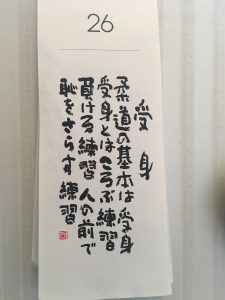 26
受身
柔道の基本は受身
受身とはころぶ練習
負ける練習 人の前で
恥をさらす練習